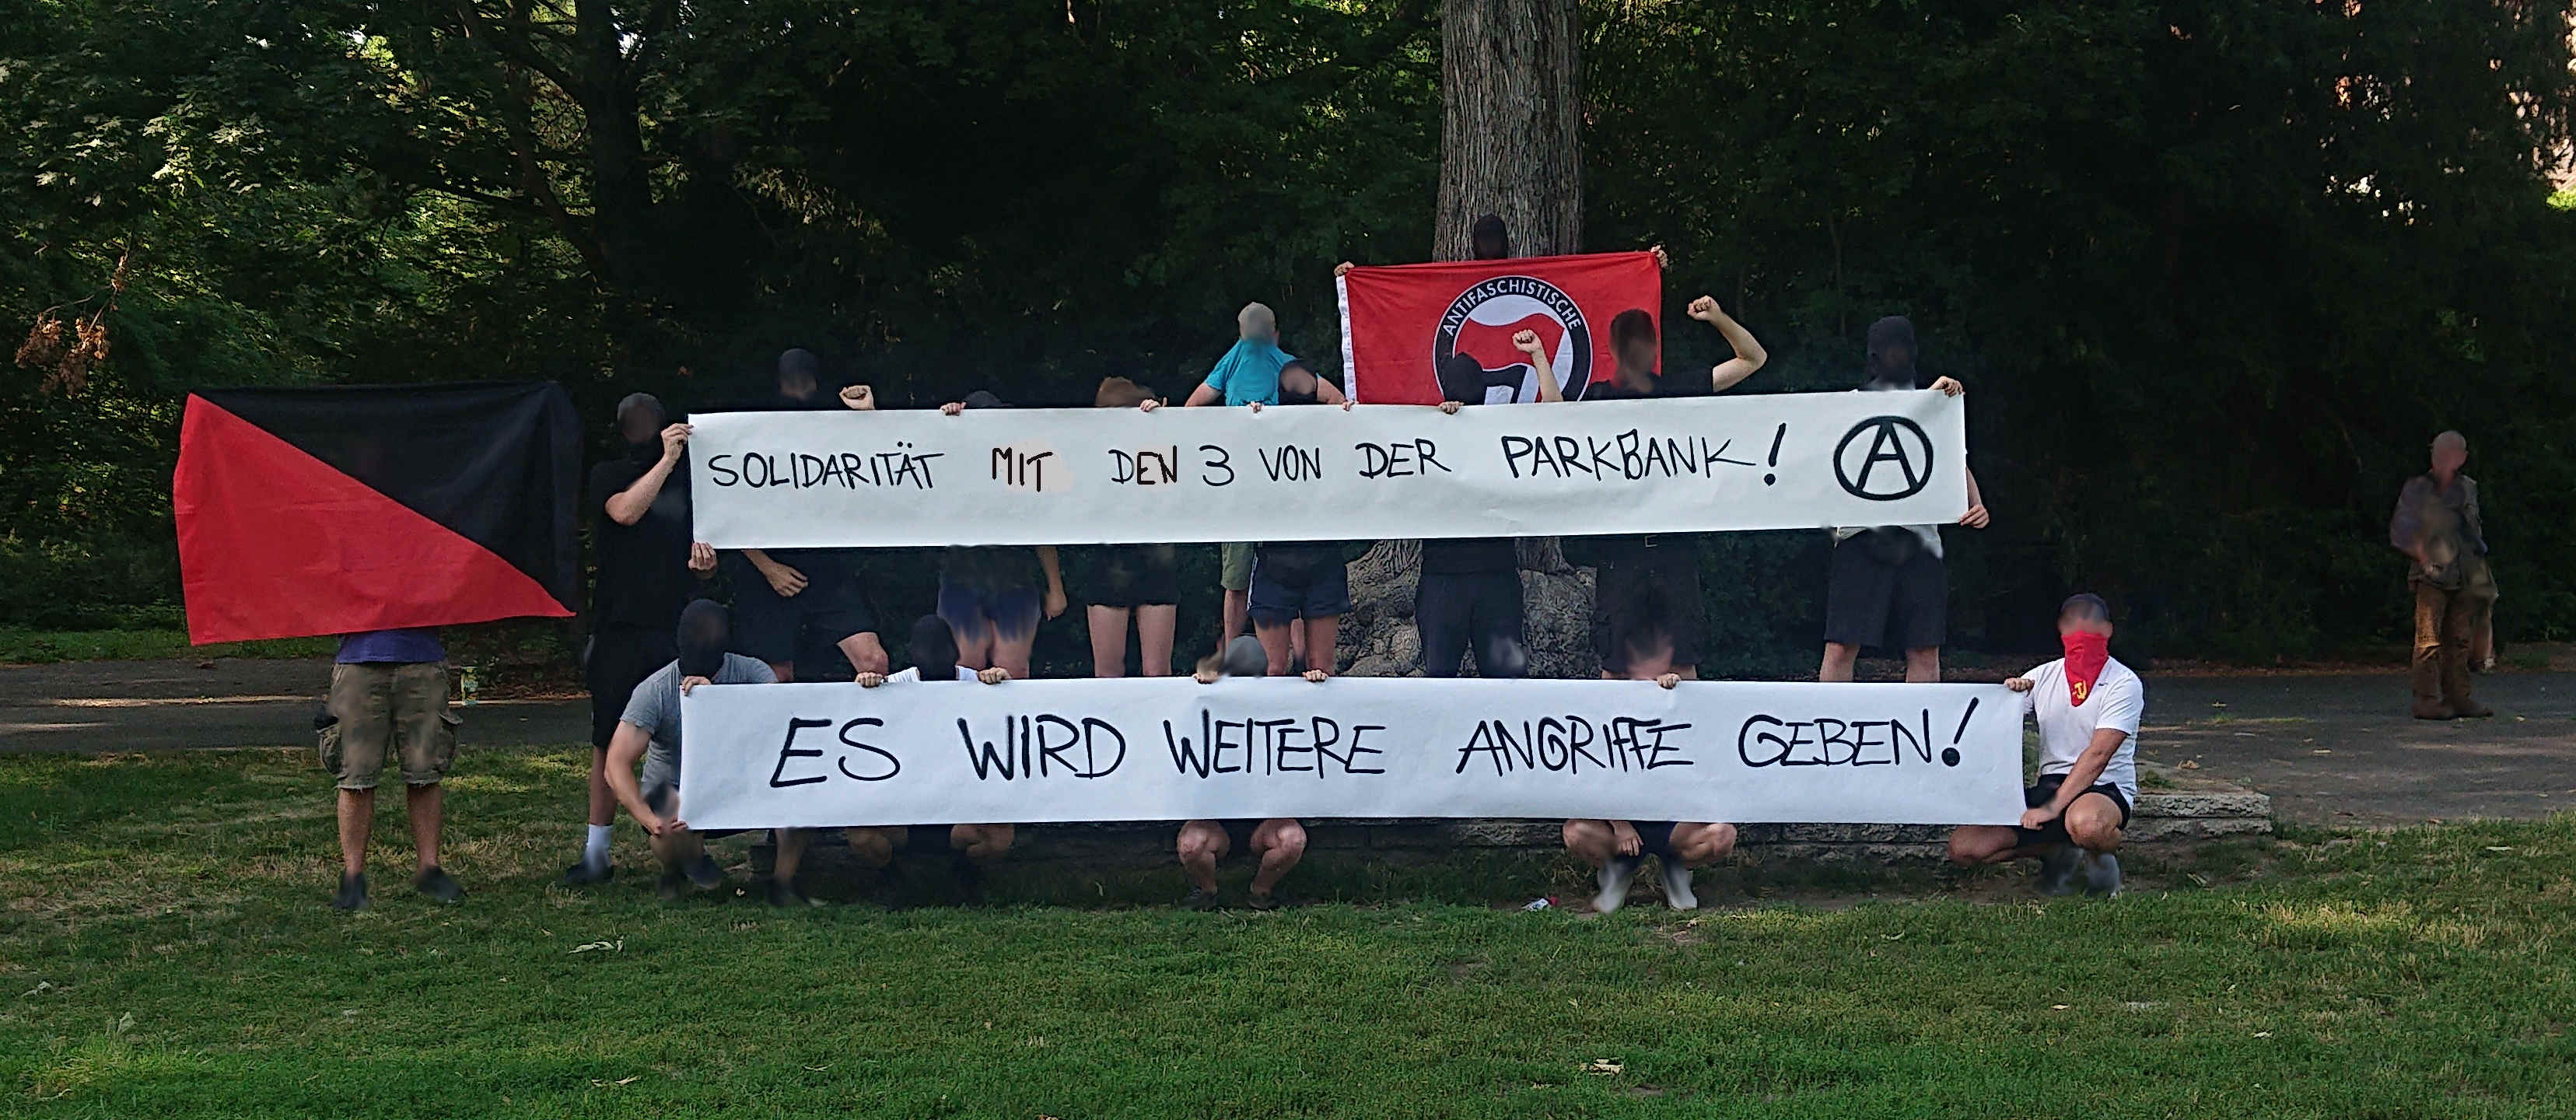 ANTIFASCHISTISCHE
SOLIDARITÄT MIT DEN 3 VON DER PARKBANK! Ⓐ
ES WIRD WEITERE ANGRIFFE GEBEN!